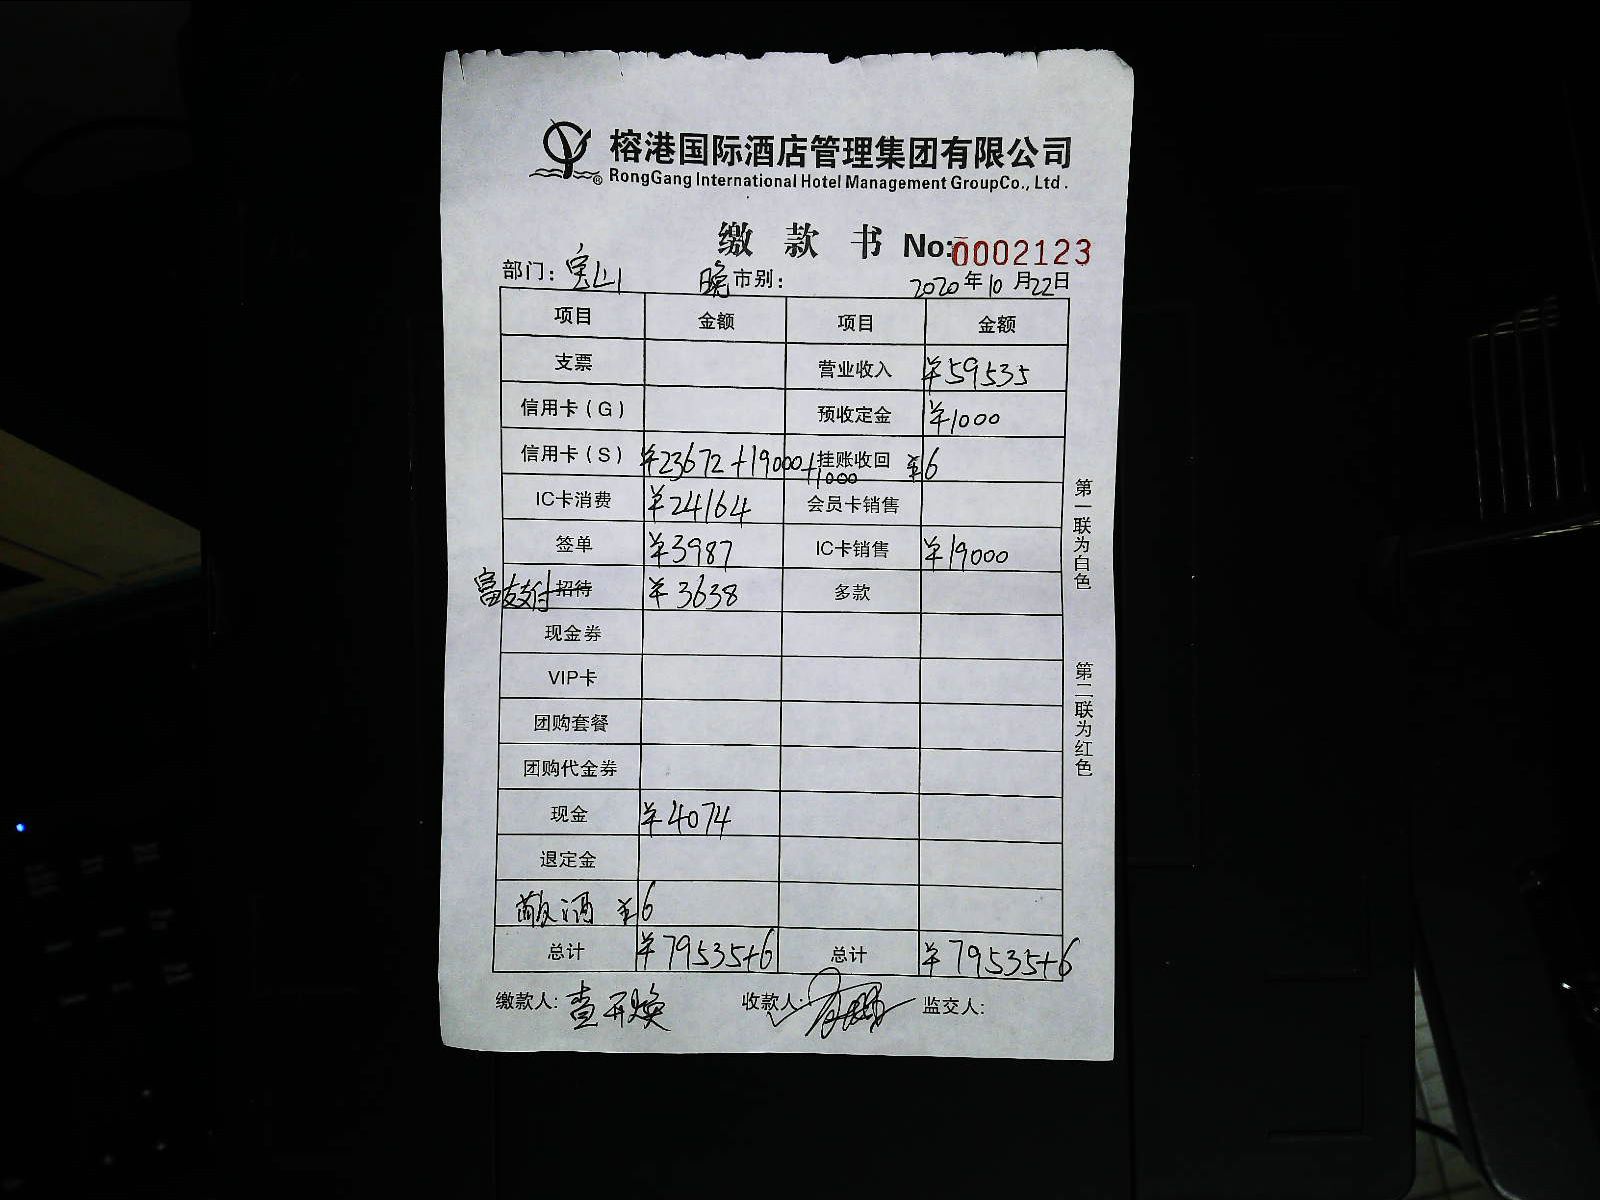 榕港国际酒店管理集团有限公司
RongGang International Hotel Management GroupCo., Ltd.
缴款书 No:0002123
部门：宝山 晚市别： 2020年10月22日
项目 金额 项目 金额
支票 营业收入 ¥59535
信用卡（G） 预收定金 ¥1000
信用卡（S） ¥23672+19000+1000 挂账收回 ¥6
IC卡消费 ¥24164 会员卡销售
签单 ¥3987 IC卡销售 ¥19000
富友支付 招待 ¥3638 多款
现金券
VIP卡
团购套餐
团购代金券
现金 ¥4074
退定金
散酒 ¥6
总计 ¥79535+6 总计 ¥79535+6
缴款人: 查开焕 收款人: 监交人:
第一联为白色
第二联为红色